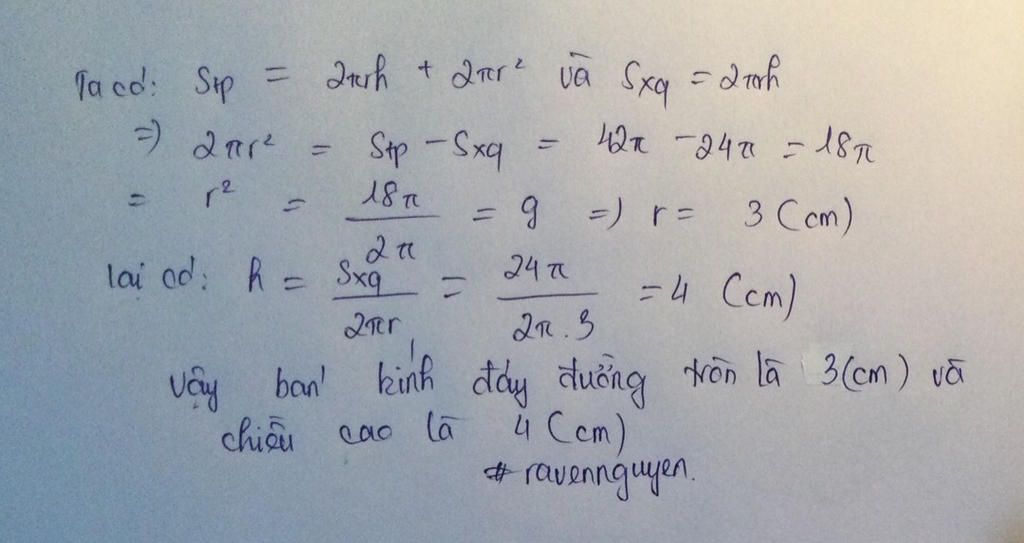 Ta có: Stp = 2πrh + 2πr² và Sxq = 2πrh
=> 2πr² = Stp - Sxq = 42π - 24π = 18π
= r² = 18π/2π = 9 => r = 3 (cm)
lại có: h = Sxq/2πr = 24π/2π.3 = 4 (cm)
vậy bán kính đáy đường tròn là 3(cm) và
chiều cao là 4 (cm)
# ravennguyen.